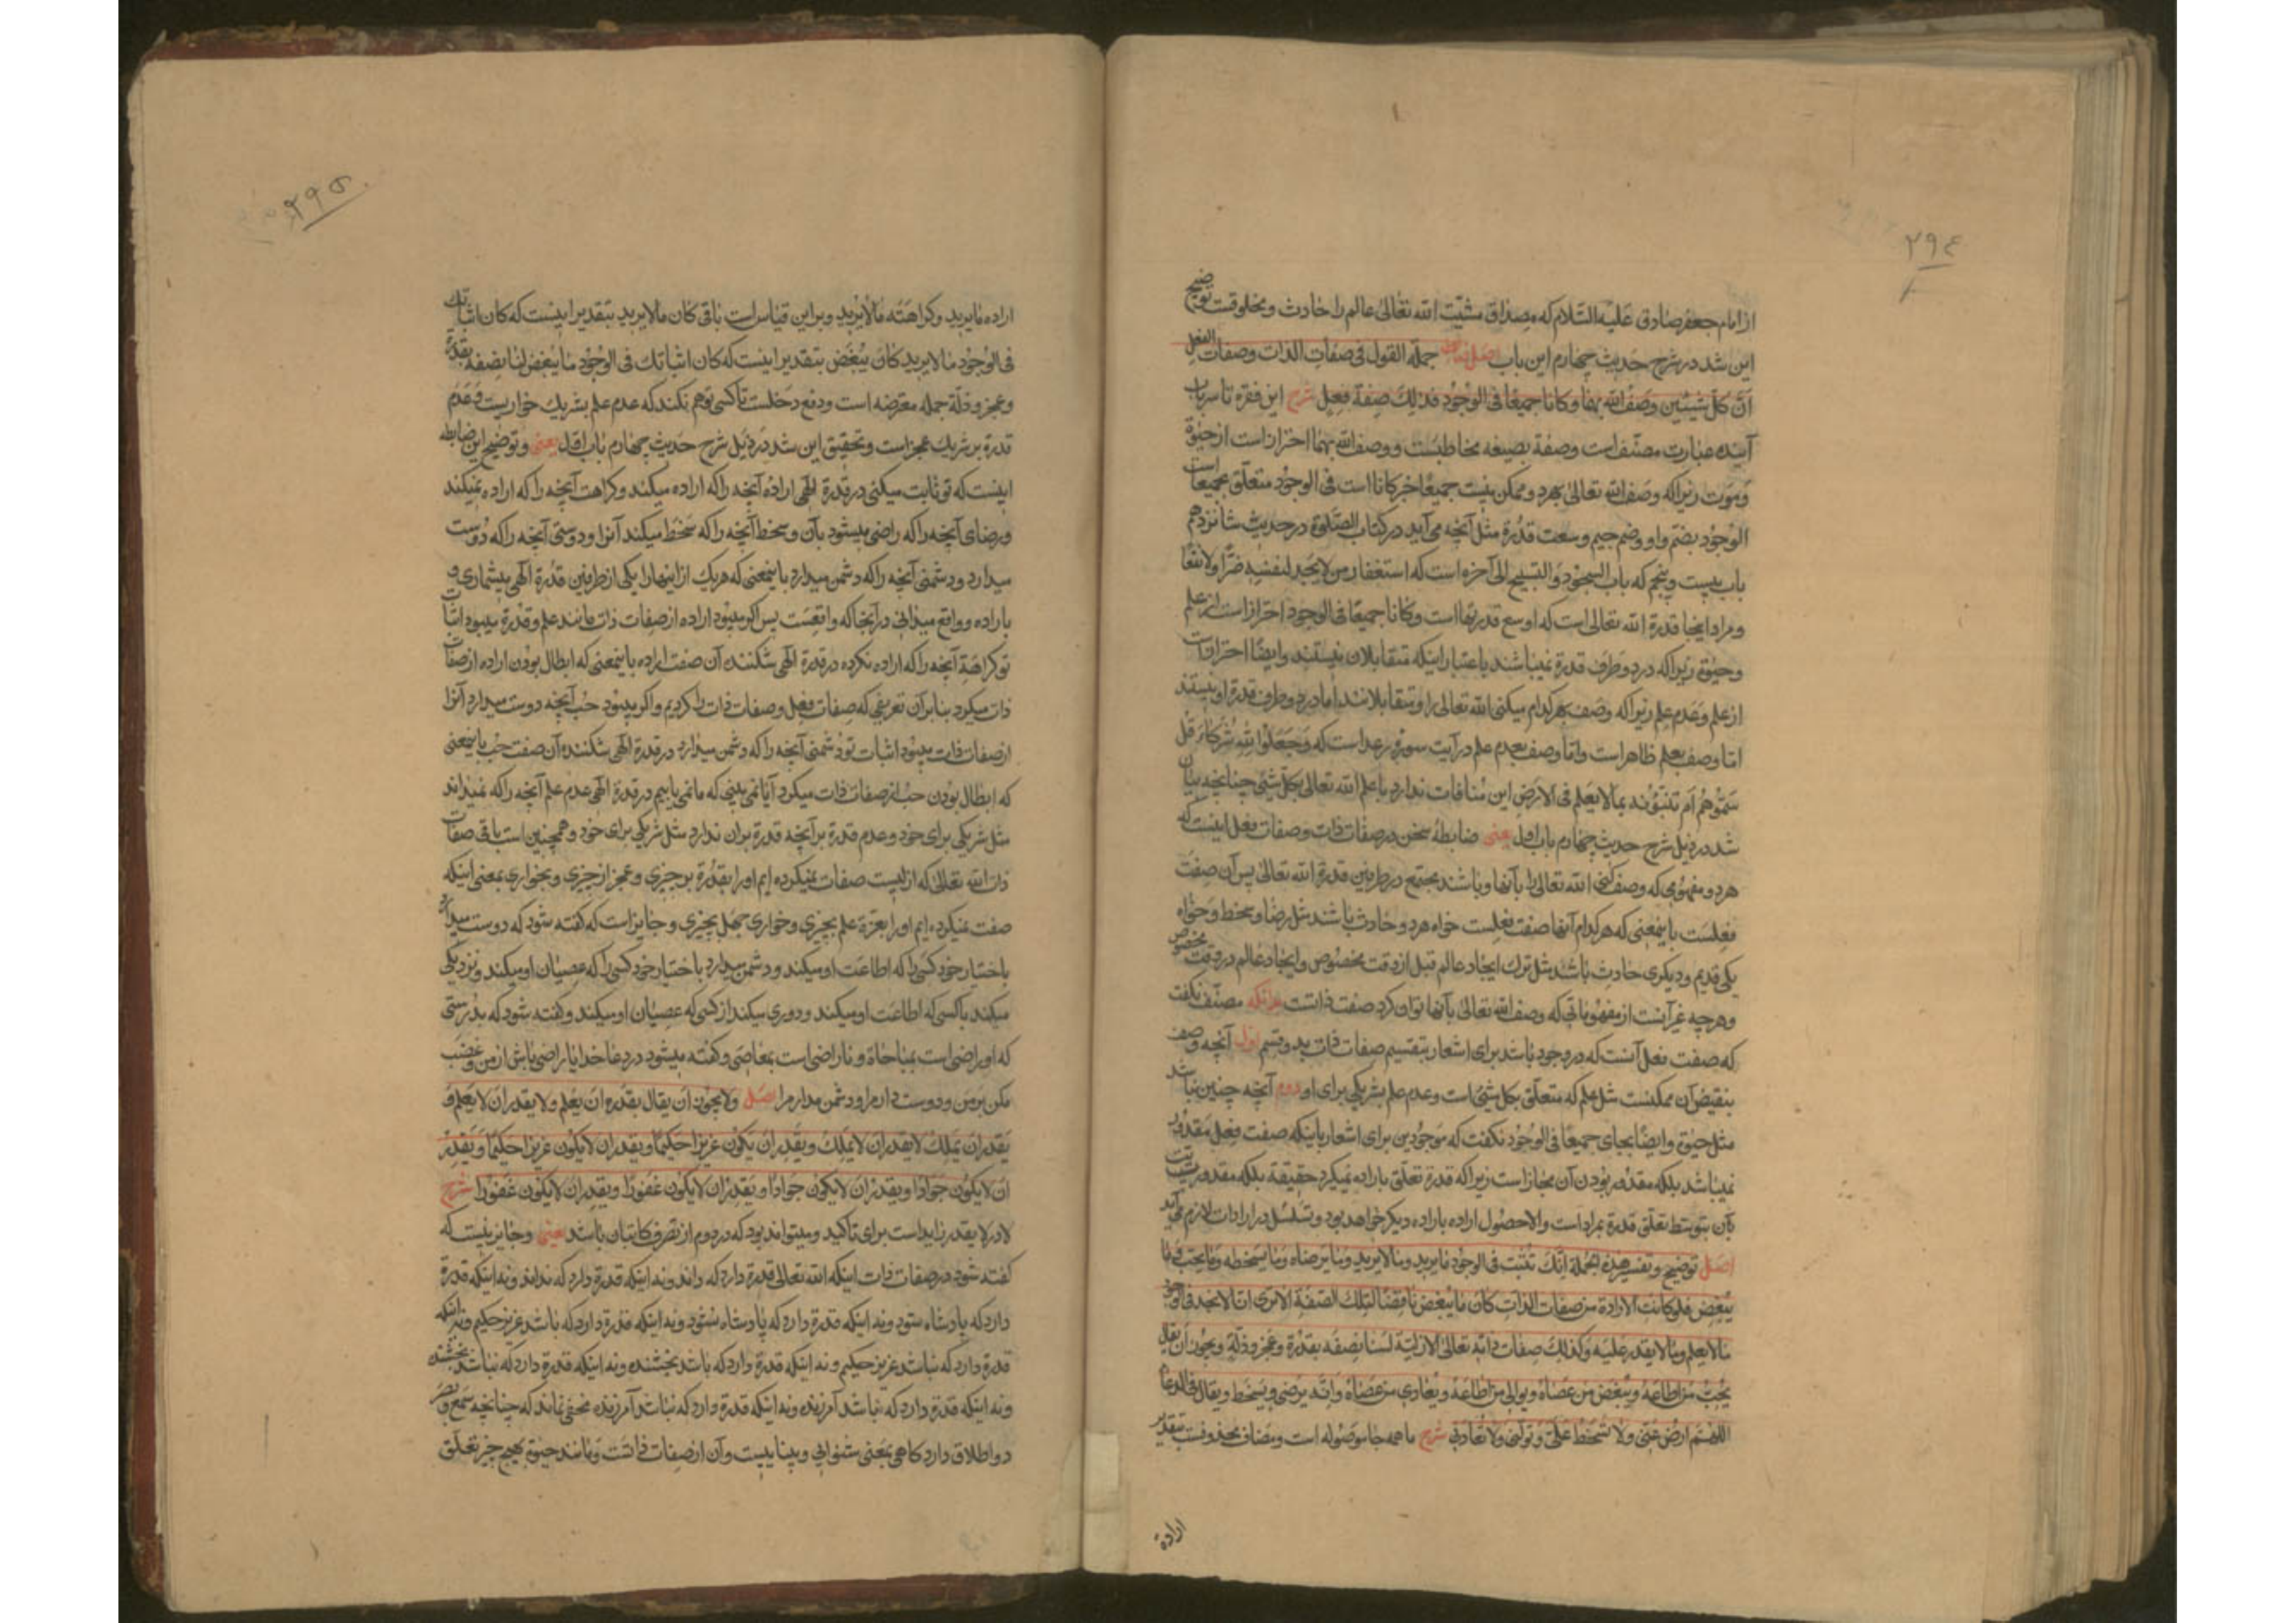 ۲۹۴
از امام جعفر صادق علیه السّلام که مصداق مشیّت الله تعالی عالم را حادث و مخلوقست توضیح
این شد در شرح حدیث چهارم این باب اصل جملة القول فی صفات الذات وصفات الفعل
انّ کلّ شیئین وصفت الله بهما و کانا جمیعًا فی الوجود فذلک صفة فعل شرح این فقره تا سر باب
آینده عبارت مصنّف است وصفة بصیغه مخاطبست ووصفت الله بهما احتراز است از حیٰوة
وموت زیرا که وصف الله تعالی بهر دو ممکن نیست جمیعًا خبر کانا است فی الوجود متعلّق بجمیعًا است
الوجود بضمّ واو وضم جیم وسعت قدرة مثل آنچه می آید در کتاب الصّلوة در حدیث شانزدهم
باب بیست وپنجم که باب السجود والتسبیح الی آخره است که استغفار من لا یجد لنفسه ضرًّا ولا نفعًا
ومراد اینجا قدرة الله تعالی است که اوسع قدرتها است وکانا جمیعًا فی الوجود احتراز است از علم
وحیٰوة زیرا که در دو طرف قدرة نمیباشند باعتبار اینکه متقابلان نیستند وایضًا احتراز است
از علم وعدم علم زیرا که وصف بهر کدام میکنی الله تعالی را ومتقابلانند اما در دو طرف قدرة او نیستند
امّا وصف بعلم ظاهر است وامّا وصف بعدم علم در آیت سورهٔ رعد است که وجعلوا لله شرکاء قل
سمّوهم ام تنبّؤنه بما لا یعلم فی الارض این منافات ندارد با علم الله تعالی بکلّ شیئ چنانچه بیان
شد در ذیل شرح حدیث چهارم باب اول یعنی ضابطهٔ سخن در صفات ذات وصفات فعل اینست که
هر دو مفهومی که وصف کنی الله تعالی را بآنها وباشند مجتمع در طرفین قدرة الله تعالی پس آن صفت
فعلست باینمعنی که هر کدام آنها صفت فعلست خواه هر دو حادث باشند مثل رضا وسخط وخواه
یکی قدیم ودیگری حادث باشد مثل ترک ایجاد عالم قبل از وقت مخصوص وایجاد عالم در وقت مخصوص
وهر چه غیر آنست از مفهوماتی که وصف الله تعالی بآنها توان کرد صفت ذاتست بدانکه مصنّف نگفت
که صفت فعل آنست که در وجود باشد برای اشعار بتقسیم صفات ذات بدو قسم اول آنچه وصف
بنقیض آن ممکنست مثل علم که متعلّق بکل شیئ است وعدم علم بشریکی برای او دوم آنچه چنین نباشد
مثل حیٰوة وایضًا بجای جمیعًا فی الوجود نگفت که موجودین برای اشعار باینکه صفت فعل مقدور
نمیباشد بلکه مقدور بودن آن مجاز است زیرا که قدرة تعلّق باراده نمیگیرد حقیقةً بلکه مقدوریت
بآن بتوسّط تعلّق قدرة بمراد است والا حصول اراده باراده دیگر خواهد بود وتسلسل در ارادات لازم می آید
اصل توضیح وتفسیر هذه الجملة انّک تثبت فی الوجود ما یرید وما لا یرید وما یرضاه وما یسخطه وما یحبّ وما
یبغض فلو کانت الارادة من صفات الذات کان ما یبغض ناقضًا لتلک الصفة الا تری انّا لا نجد فی الوجود
ما لا یعلم وما لا یقدر علیه وکذلک صفات ذاته تعالی الازلیّة لسنا نصفه بقدرة وعجز وذلّة ویجوز ان یقال
یحبّ من اطاعه ویبغض من عصاه ویوالی من اطاعه ویعادی من عصاه وانّه یرضی ویسخط ویقال فی الدعاء
اللّهمّ ارض عنّی ولا تسخط علیّ وتولّنی ولا تعادنی شرح ما همه جا موصوله است ومضاف محذوفست بتقدیر
ارادة
۲۹۵
اراده ما یرید وکراهته ما لا یرید وبراین قیاس است باقی کان ما لا یرید بتقدیر اینست که کان اثباتک
فی الوجود ما لا یرید کان یبغض بتقدیر اینست که کان اثباتک فی الوجود ما یبغض لنا نصفه بقدرة
وعجز وذلّة جمله معترضه است ودفع دخلست تا کسی توهم نکند که عدم علم بشریک خواریست وعدم
قدرة بر شریک عجز است وتحقیق این شد در ذیل شرح حدیث چهارم باب اول یعنی وتوضیح این ضابطه
اینست که تو ثابت میکنی در قدرة الهی ارادهٔ آنچه را که اراده میکند وکراهت آنچه را که اراده نمیکند
ورضای آنچه را که راضی میشود بآن وسخط آنچه را که سخط میکند آنرا ودوستی آنچه را که دوست
میدارد ودشمنی آنچه را که دشمن میدارد باینمعنی که هر یک از اینها را یکی از طرفین قدرة الهی میشماری و
باراده وواقع میدانی در آنجا که واقعست پس اگر میبود اراده از صفات ذات مانند علم وقدرة میبود اثبات
تو کراهة آنچه را که اراده نکرده در قدرة الهی شکننده آن صفت اراده باینمعنی که ابطال بودن اراده از صفات
ذات میکرد بنا بر آن تعریفی که صفات فعل وصفات ذات را کردیم واگر میبود حب آنچه دوست میدارد آنرا
از صفات ذات میبود اثبات تو دشمنی آنچه را که دشمن میدارد در قدرة الهی شکننده آن صفت حب باینمعنی
که ابطال بودن حب از صفات ذات میکرد آیا نمی بینی که ما نمی یابیم در قدرة الهی عدم علم آنچه را که نمیداند
مثل شریکی برای خود وعدم قدرة بر آنچه قدرة بر آن ندارد مثل شریکی برای خود وهمچنین است باقی صفات
ذات الله تعالی که ازلیست صفات نمیکرده ایم او را بقدرة بر چیزی وعجز از چیزی وبخواری بمعنی اینکه
صفت نمیکرده ایم او را بعزّة علم بچیزی وخواری جهل بچیزی وجایز است که گفته شود که دوست میدارد
باختیار خود کسی را که اطاعت او میکند ودشمن میدارد باختیار خود کسی را که عصیان او میکند ونزدیکی
میکند با کسی که اطاعت او میکند ودوری میکند از کسی که عصیان او میکند وگفته شود که بدرستی
که او راضی است بمناجاة وناراضی است بمعاصی وگفته میشود در دعا خدایا راضی باش از من وغضب
مکن بر من ودوست دار مرا ودشمن مدار مرا اصل ولا یجوز ان یقال یقدر ان یعلم ولا یقدر ان لا یعلم و
یقدر ان یملک لا یقدر ان لا یملک ویقدر ان یکون عزیزًا حکیمًا ویقدر ان لا یکون عزیزًا حکیمًا ویقدر
ان لا یکون جوادًا ویقدر ان لا یکون جوادًا ویقدر ان لا یکون غفورًا ویقدر ان لا یکون غفورًا شرح
لا در لا یقدر زاید است برای تاکید ومیتواند بود که در دوم از تصرف کاتبان باشد یعنی وجایز نیست که
گفته شود در صفات ذات اینکه الله تعالی قدرة دارد که داند ونه اینکه قدرة دارد که نداند ونه اینکه قدرة
دارد که پادشاه شود ونه اینکه قدرة دارد که پادشاه نشود ونه اینکه قدرة دارد که باشد عزیز حکیم ونه اینکه
قدرة دارد که نباشد عزیز حکیم ونه اینکه قدرة دارد که باشد بخشنده ونه اینکه قدرة دارد که نباشد بخشنده
ونه اینکه قدرة دارد که باشد آمرزنده ونه اینکه قدرة دارد که نباشد آمرزنده مخفی نماند که چنانچه سمع وبصر
دو اطلاق دارد کاهی بمعنی شنوایی وبیناییست وآن از صفات ذاتست ومانند حیٰوة بهیچ چیز تعلّق